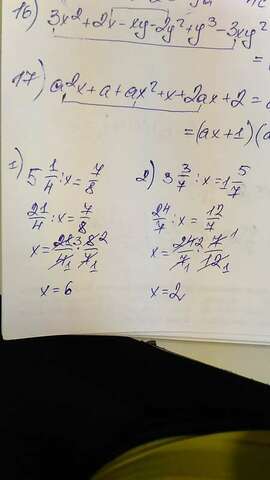 16) 3x² + 2x - xy - 2y² + y³ - 3xy²
= (
17) a²x + a + ax² + x + 2ax + 2 =
= (ax + 1)(a
1) 5 1/4 : x = 7/8
21/4 : x = 7/8
x = 21 3 · 8 2 / 4 1 · 7 1
x = 6
2) 3 3/7 : x = 1 5/7
24/7 : x = 12/7
x = 24 2 · 7 1 / 7 1 · 12 1
x = 2